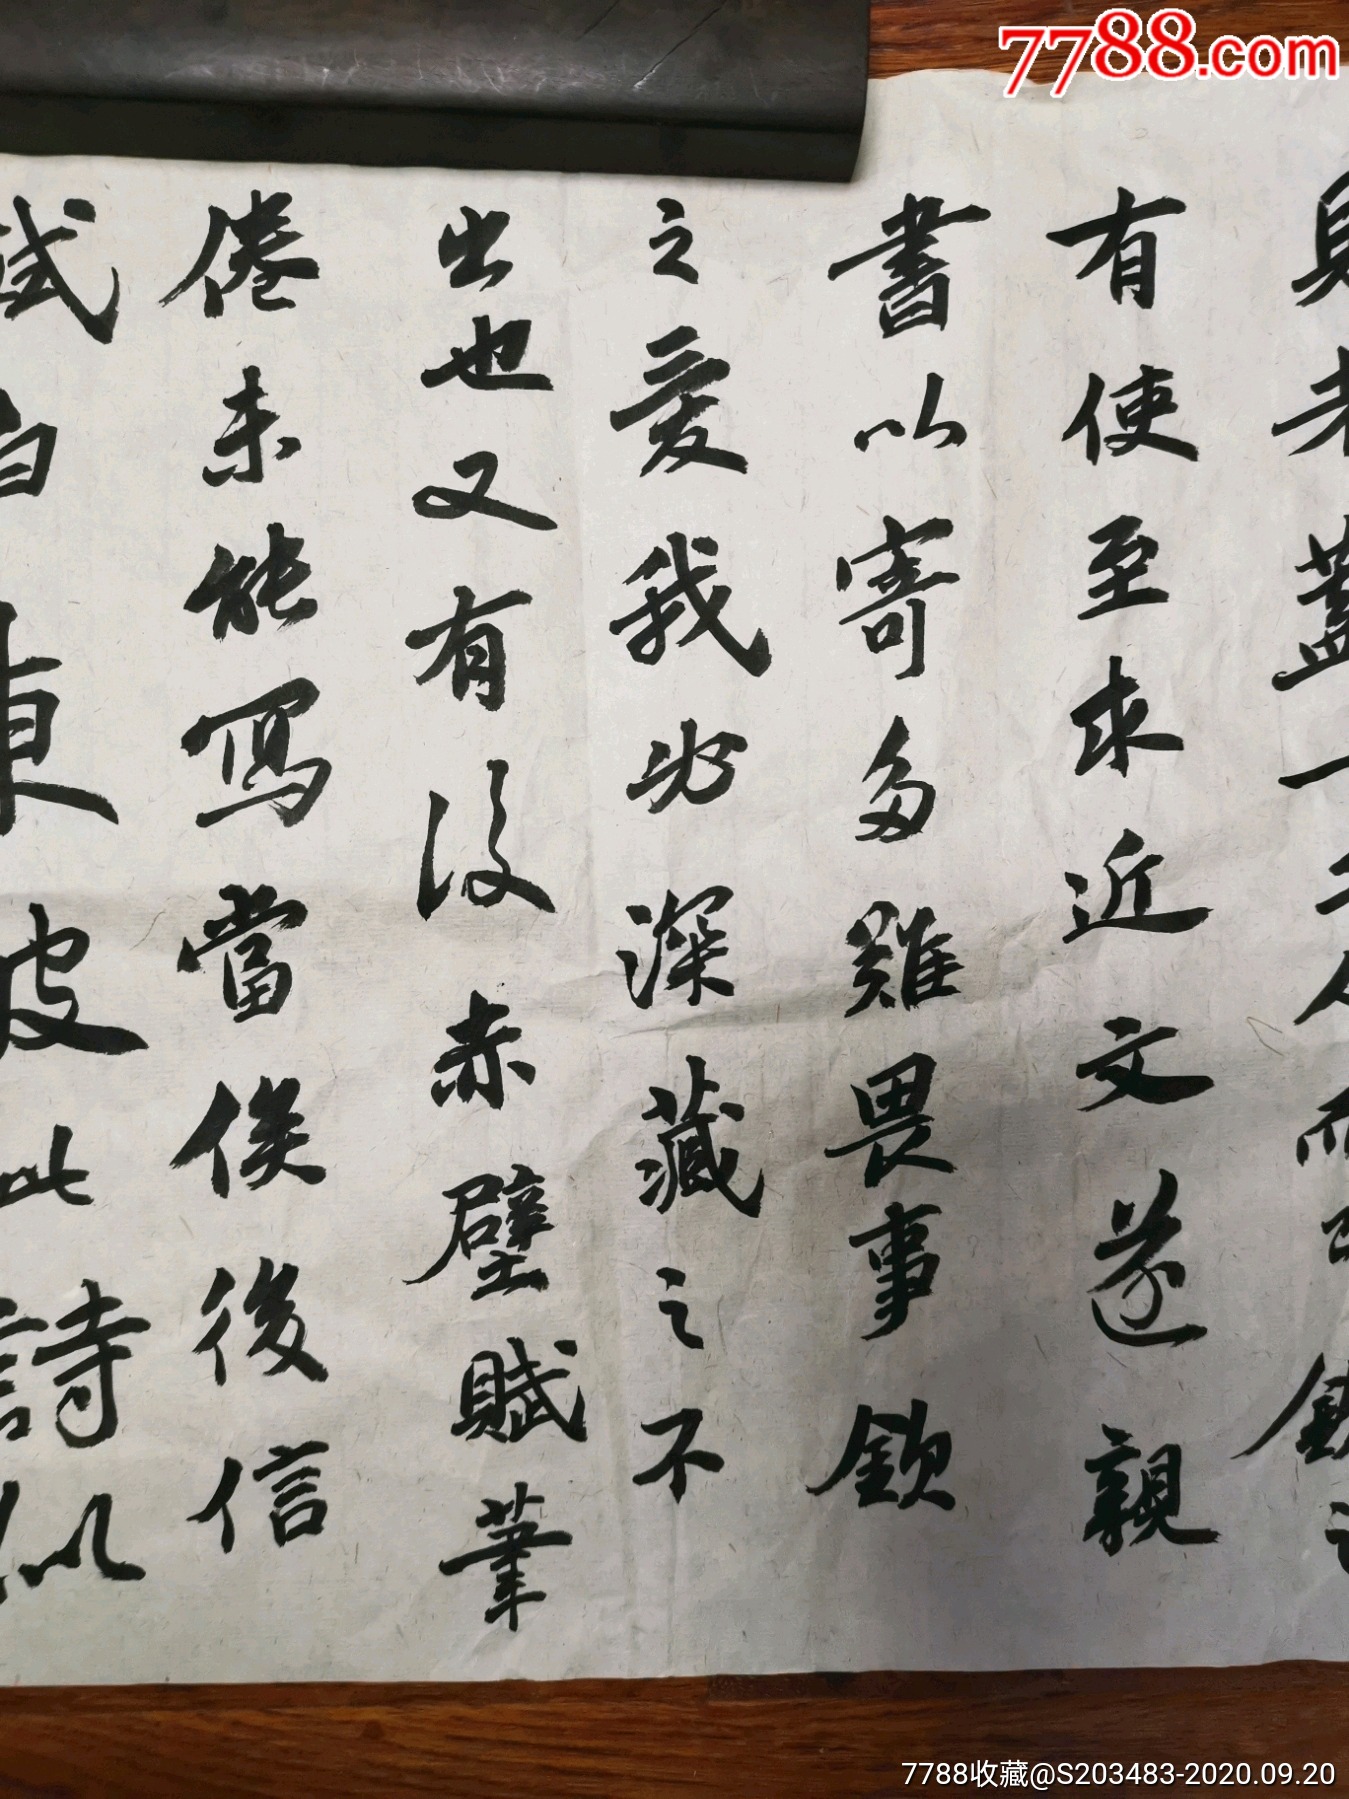 7788.com
見者蓋一二人而已欽之
有使至求近文遂親
書以寄多難畏事欽
之愛我必深藏之不
出也又有後赤壁賦筆
倦未能寫當俟後信
軾白東坡此詩似
7788收藏@S203483-2020.09.20